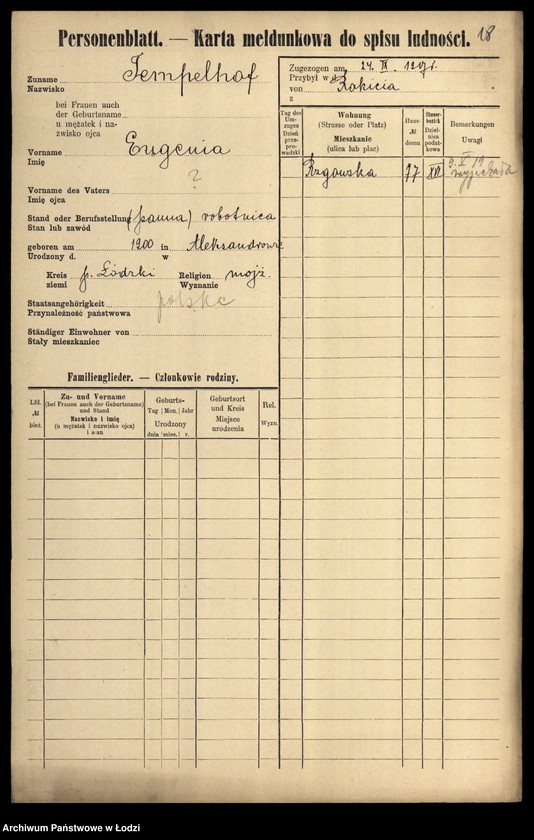 Personenblatt. — Karta meldunkowa do spisu ludności. 18
Zuname Tempelhof
Nazwisko
bei Frauen auch
der Geburtsname
u mężatek i na-
zwisko ojca
Vorname Eugenia
Imię
Vorname des Vaters ?
Imię ojca
Stand oder Berufsstellung (panna) robotnica
Stan lub zawód
geboren am 1900 in Aleksandrowie
Urodzony d. w
Kreis p. Łódzki Religion mojż.
ziemi Wyznanie
Staatsangehörigkeit polska
Przynależność państwowa
Ständiger Einwohner von
Stały mieszkaniec
Zugezogen am 24. IX.
Przybył w d.
von Rokicia
z
Tag des Um-zuges Dzień prze-prowadzki
Wohnung (Strasse oder Platz) Mieszkanie (ulica lub plac)
Haus- № domu
Steuer-bezirk Dzielnica podat-kowa
Bemerkungen Uwagi
Rzgowska 77 XIV 9. V 19
wyjechała
Familienglieder. — Członkowie rodziny.
Lfd. № bież.
Zu- und Vorname
(bei Frauen auch der Geburtsname)
und Stand
Nazwisko i imię
(u mężatek i nazwisko ojca)
i stan
Geburts-
Tag Mon. Jahr
Urodzony
dnia mies. r.
Geburtsort
und Kreis
Miejsce
urodzenia
Rel.
Wyzn.
Archiwum Państwowe w Łodzi